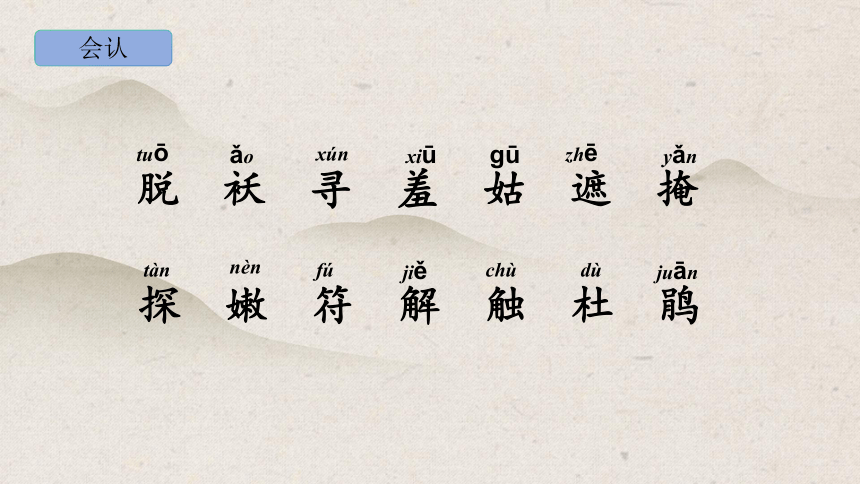 会认
tuō ǎo xún xiū gū zhē yǎn
脱 袄 寻 羞 姑 遮 掩
tàn nèn fú jiě chù dù juān
探 嫩 符 解 触 杜 鹃